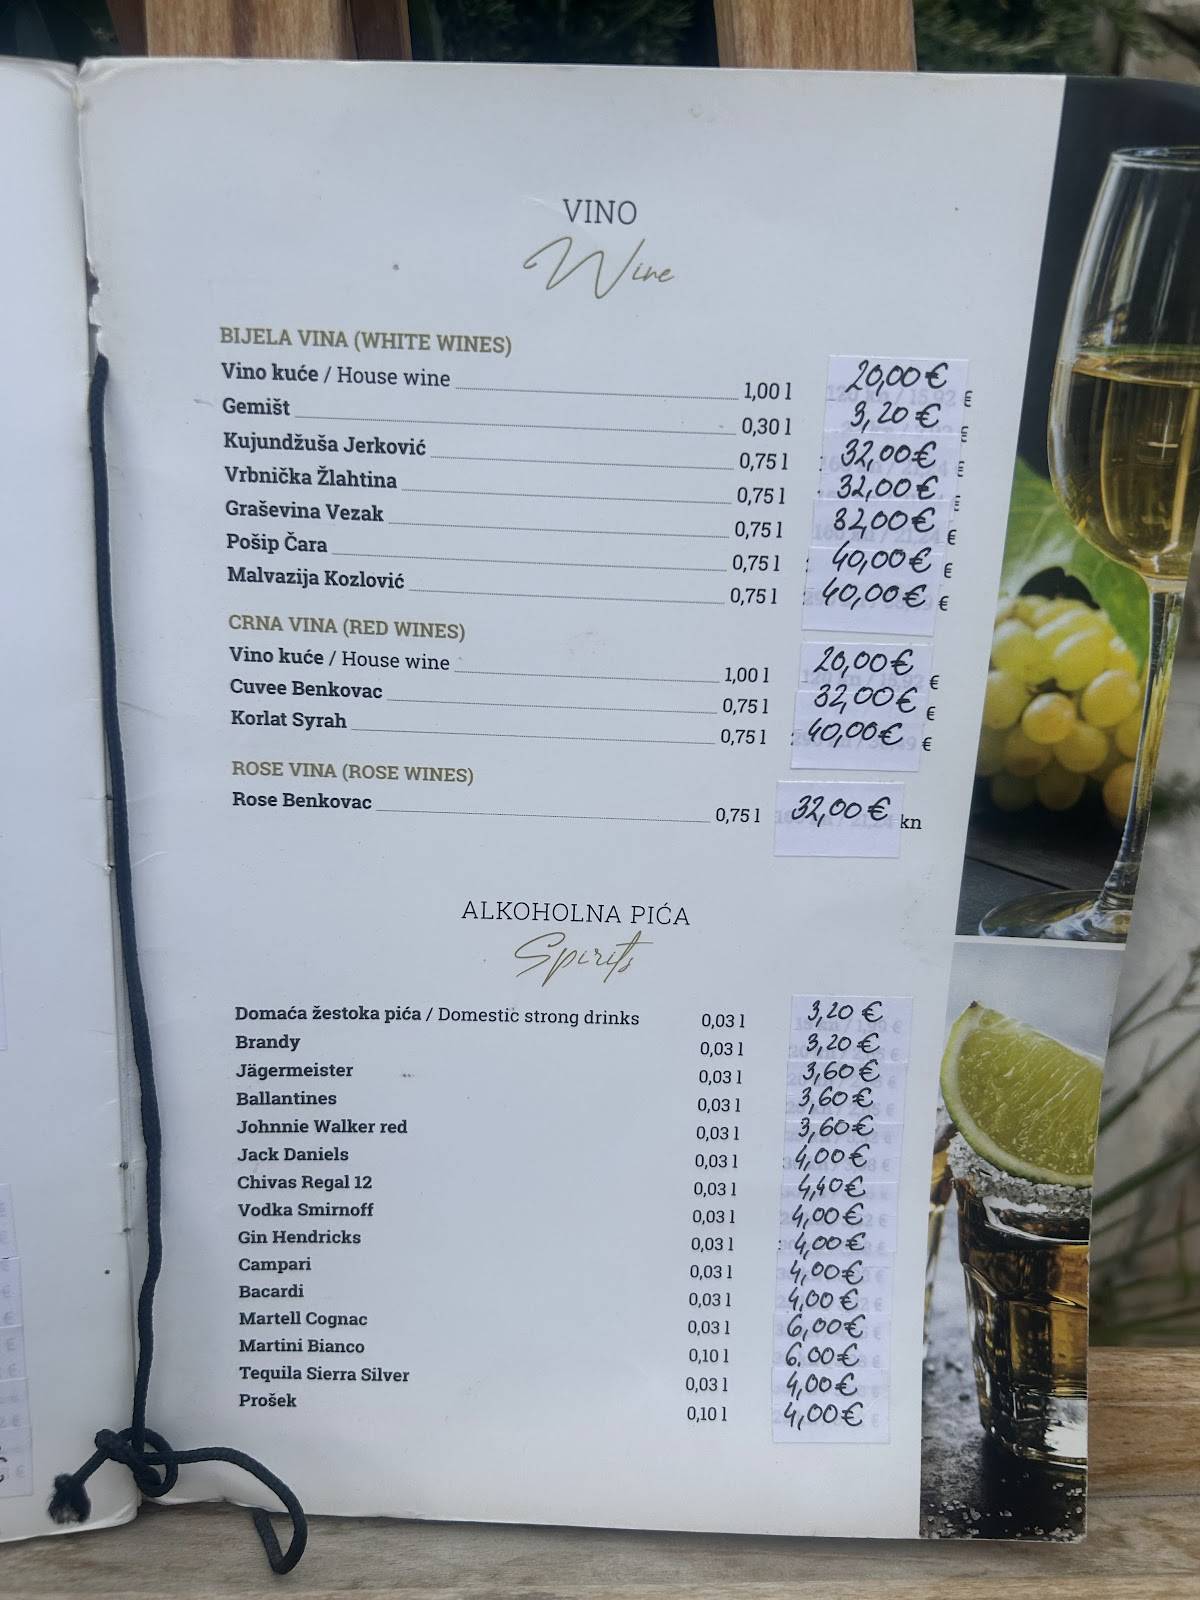 VINO
Wine
BIJELA VINA (WHITE WINES)
Vino kuće / House wine 1,00 l 20,00 € €
Gemišt 0,30 l 3,20 € €
Kujundžuša Jerković 0,75 l 32,00 € €
Vrbnička Žlahtina 0,75 l 32,00 € €
Graševina Vezak 0,75 l 32,00 € €
Pošip Čara 0,75 l 40,00 € €
Malvazija Kozlović 0,75 l 40,00 € €
CRNA VINA (RED WINES)
Vino kuće / House wine 1,00 l 20,00 € €
Cuvee Benkovac 0,75 l 32,00 € €
Korlat Syrah 0,75 l 40,00 € €
ROSE VINA (ROSE WINES)
Rose Benkovac 0,75 l 32,00 € kn
ALKOHOLNA PIĆA
Spirits
Domaća žestoka pića / Domestic strong drinks 0,03 l 3,20 €
Brandy 0,03 l 3,20 €
Jägermeister 0,03 l 3,60 €
Ballantines 0,03 l 3,60 €
Johnnie Walker red 0,03 l 3,60 €
Jack Daniels 0,03 l 4,00 €
Chivas Regal 12 0,03 l 4,40 €
Vodka Smirnoff 0,03 l 4,00 €
Gin Hendricks 0,03 l 4,00 €
Campari 0,03 l 4,00 €
Bacardi 0,03 l 4,00 €
Martell Cognac 0,03 l 6,00 €
Martini Bianco 0,10 l 6.00 €
Tequila Sierra Silver 0,03 l 4,00 €
Prošek 0,10 l 4,00 €